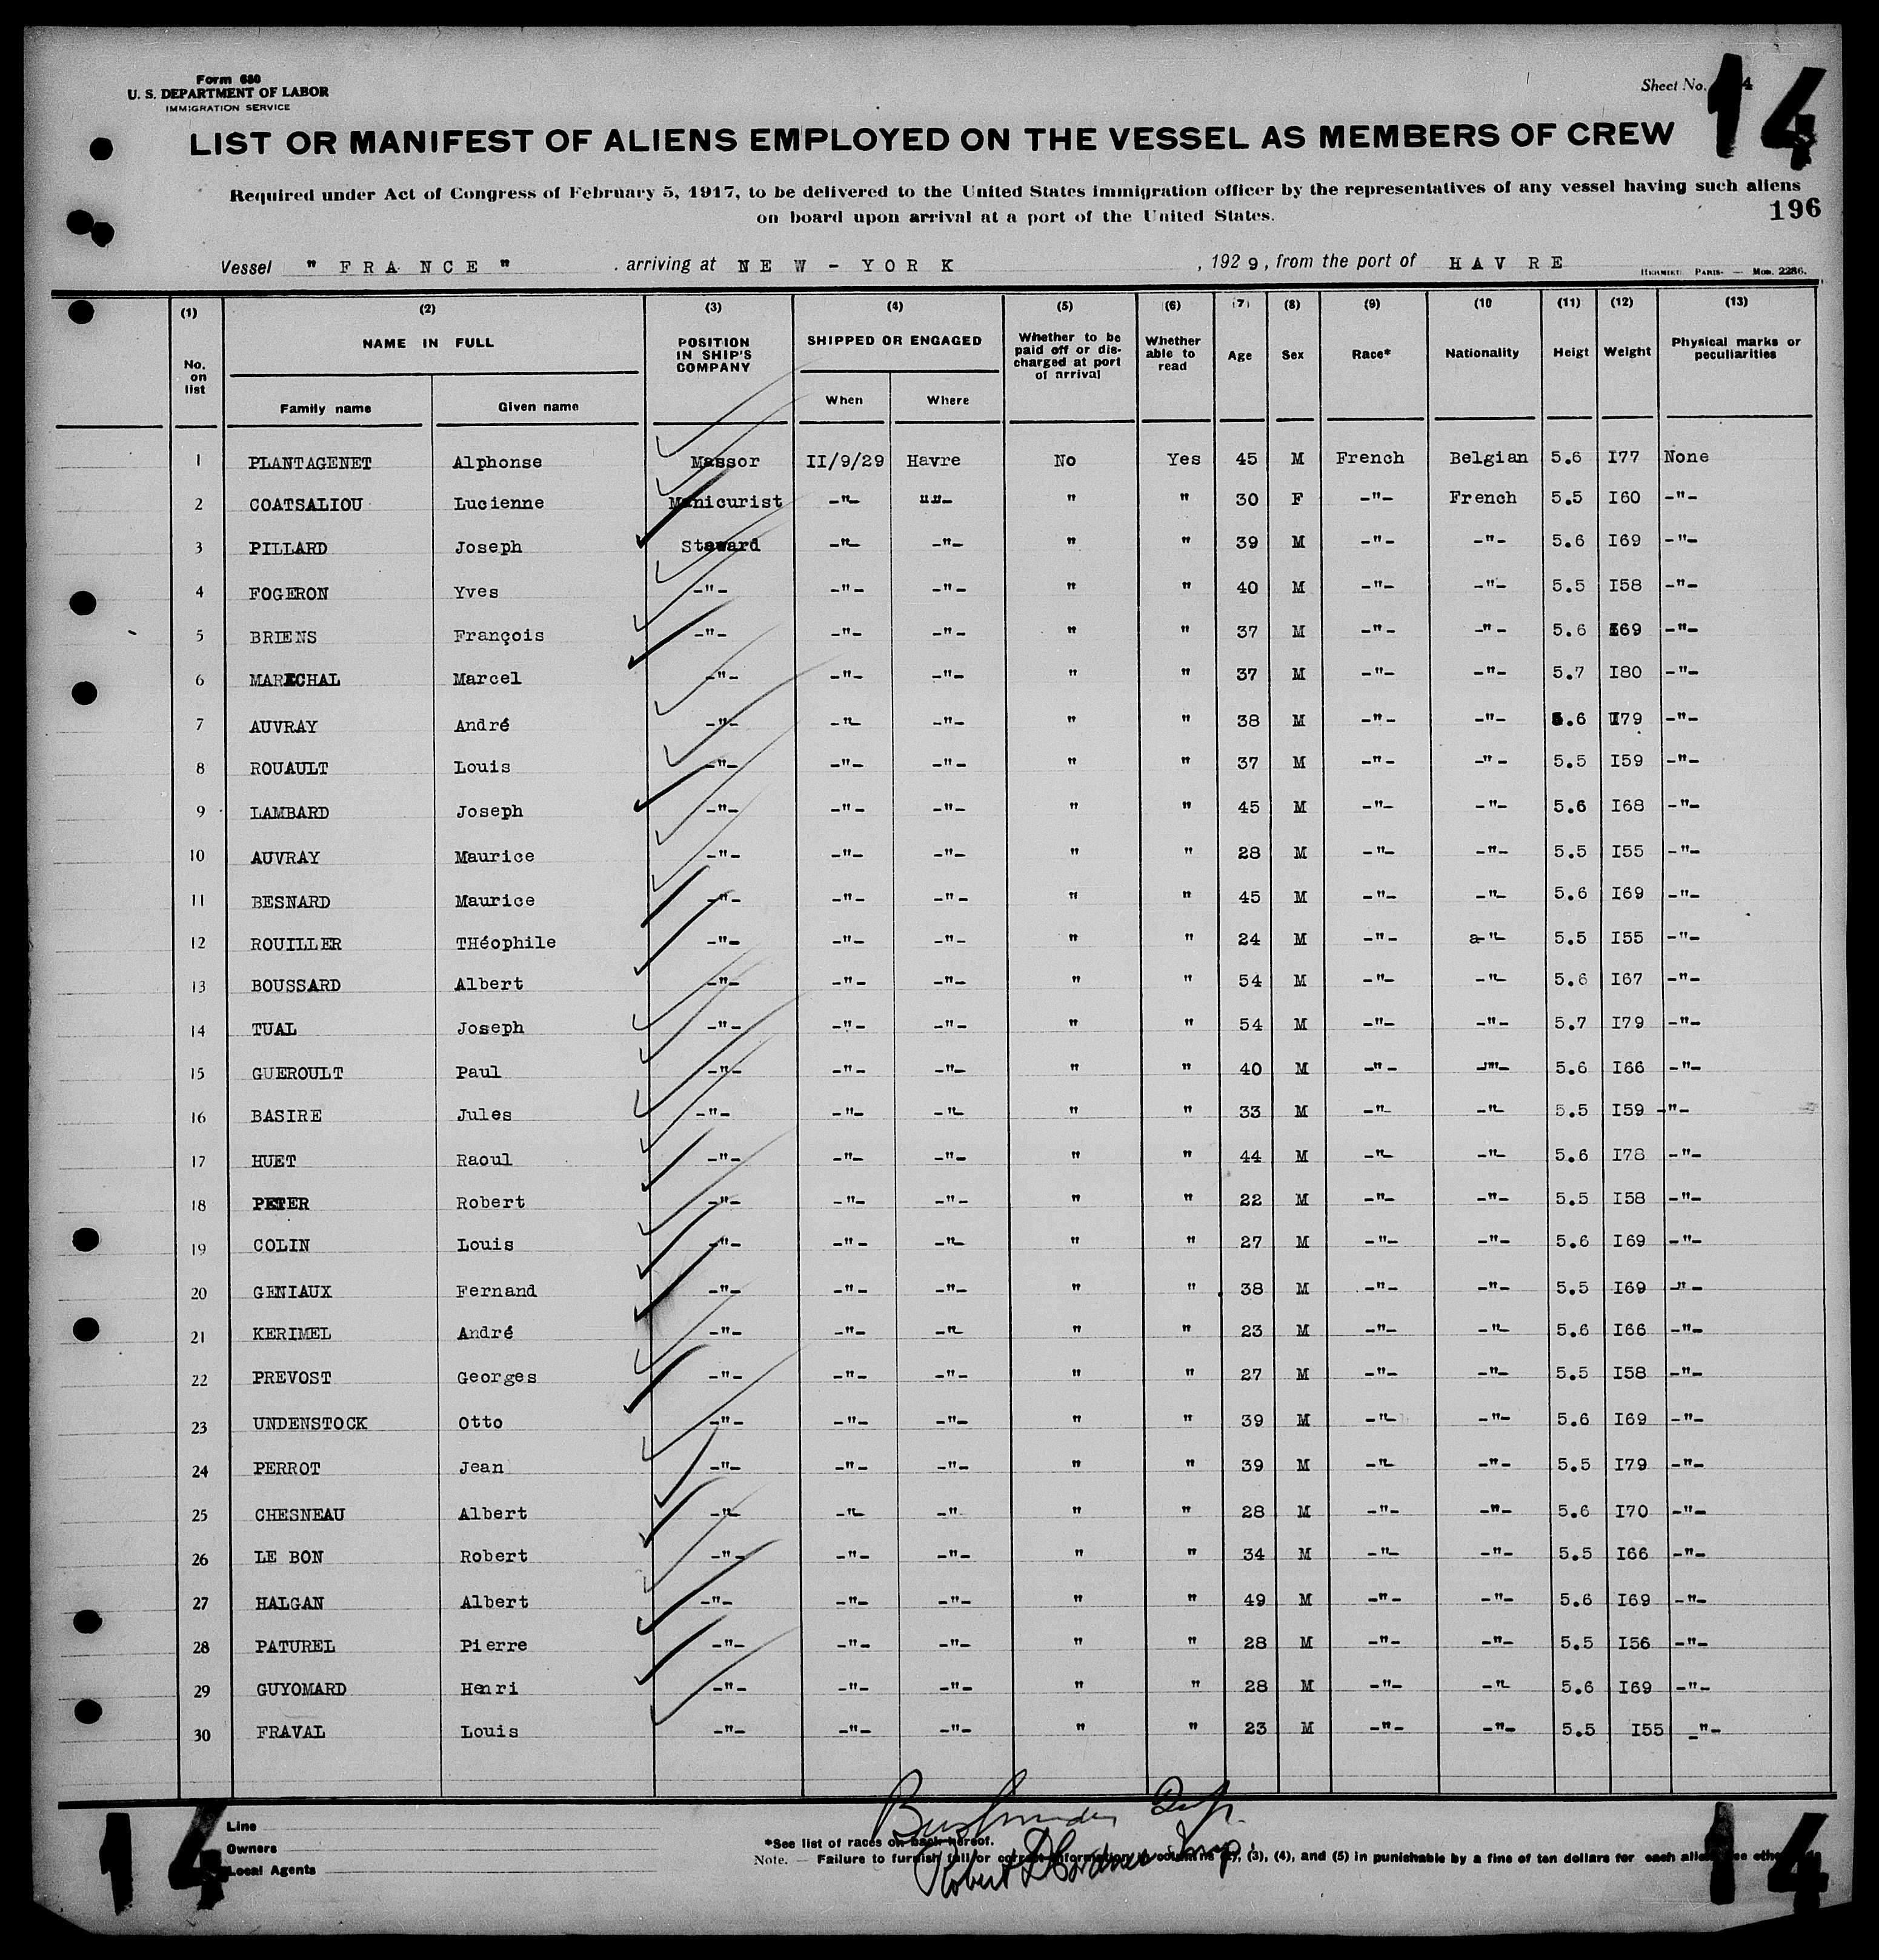 Form 680
U. S. DEPARTMENT OF LABOR
IMMIGRATION SERVICE
Sheet No. 14
LIST OR MANIFEST OF ALIENS EMPLOYED ON THE VESSEL AS MEMBERS OF CREW
Required under Act of Congress of February 5, 1917, to be delivered to the United States immigration officer by the representatives of any vessel having such aliens
on board upon arrival at a port of the United States.
196
Vessel " FRANCE " . arriving at NEW-YORK , 1929, from the port of HAVRE
HERMIEU PARIS. — Mod. 2286.
(1) (2) (3) (4) (5) (6) (7) (8) (9) (10 (11) (12) (13)
No. on list NAME IN FULL Family name Given name POSITION IN SHIP'S COMPANY SHIPPED OR ENGAGED When Where Whether to be paid off or discharged at port of arrival Whether able to read Age Sex Race* Nationality Heigt Weight Physical marks or peculiarities
1 PLANTAGENET Alphonse Massor II/9/29 Havre No Yes 45 M French Belgian 5.6 I77 None
2 COATSALIOU Lucienne Manicurist -"- ""- " " 30 F -"- French 5.5 I60 -"-
3 PILLARD Joseph Steward -"- -"- " " 39 M -"- -"- 5.6 I69 -"-
4 FOGERON Yves -"- -"- -"- " " 40 M -"- -"- 5.5 I58 -"-
5 BRIENS François -"- -"- -"- " " 37 M -"- -"- 5.6 I69 -"-
6 MARECHAL Marcel -"- -"- -"- " " 37 M -"- -"- 5.7 I80 -"-
7 AUVRAY André -"- -"- -"- " " 38 M -"- -"- 5.6 I79 -"-
8 ROUAULT Louis -"- -"- -"- " " 37 M -"- -"- 5.5 I59 -"-
9 LAMBARD Joseph -"- -"- -"- " " 45 M -"- -"- 5.6 I68 -"-
10 AUVRAY Maurice -"- -"- -"- " " 28 M -"- -"- 5.5 I55 -"-
11 BESNARD Maurice -"- -"- -"- " " 45 M -"- -"- 5.6 I69 -"-
12 ROUILLER THéophile -"- -"- -"- " " 24 M -"- a-"- 5.5 I55 -"-
13 BOUSSARD Albert -"- -"- -"- " " 54 M -"- -"- 5.6 I67 -"-
14 TUAL Joseph -"- -"- -"- " " 54 M -"- -"- 5.7 I79 -"-
15 GUEROULT Paul -"- -"- -"- " " 40 M -"- -"- 5.6 I66 -"-
16 BASIRE Jules -"- -"- -"- " " 33 M -"- -"- 5.5 I59 -"-
17 HUET Raoul -"- -"- -"- " " 44 M -"- -"- 5.6 I78 -"-
18 PETER Robert -"- -"- -"- " " 22 M -"- -"- 5.5 I58 -"-
19 COLIN Louis -"- -"- -"- " " 27 M -"- -"- 5.6 I69 -"-
20 GENIAUX Fernand -"- -"- -"- " " 38 M -"- -"- 5.5 I69 -"-
21 KERIMEL André -"- -"- -"- " " 23 M -"- -"- 5.6 I66 -"-
22 PREVOST Georges -"- -"- -"- " " 27 M -"- -"- 5.5 I58 -"-
23 UNDENSTOCK Otto -"- -"- -"- " " 39 M -"- -"- 5.6 I69 -"-
24 PERROT Jean -"- -"- -"- " " 39 M -"- -"- 5.5 I79 -"-
25 CHESNEAU Albert -"- -"- -"- " " 28 M -"- -"- 5.6 I70 -"-
26 LE BON Robert -"- -"- -"- " " 34 M -"- -"- 5.5 I66 -"-
27 HALGAN Albert -"- -"- -"- " " 49 M -"- -"- 5.6 I69 -"-
28 PATUREL Pierre -"- -"- -"- " " 28 M -"- -"- 5.5 I56 -"-
29 GUYOMARD Henri -"- -"- -"- " " 28 M -"- -"- 5.6 I69 -"-
30 FRAVAL Louis -"- -"- -"- " " 23 M -"- -"- 5.5 I55 -"-
14
Line
Owners
Local Agents
*See list of races on back hereof.
Note. — Failure to furnish full or correct information in columns (2), (3), (4), and (5) in punishable by a fine of ten dollars for each alien
Robert Insp.
14